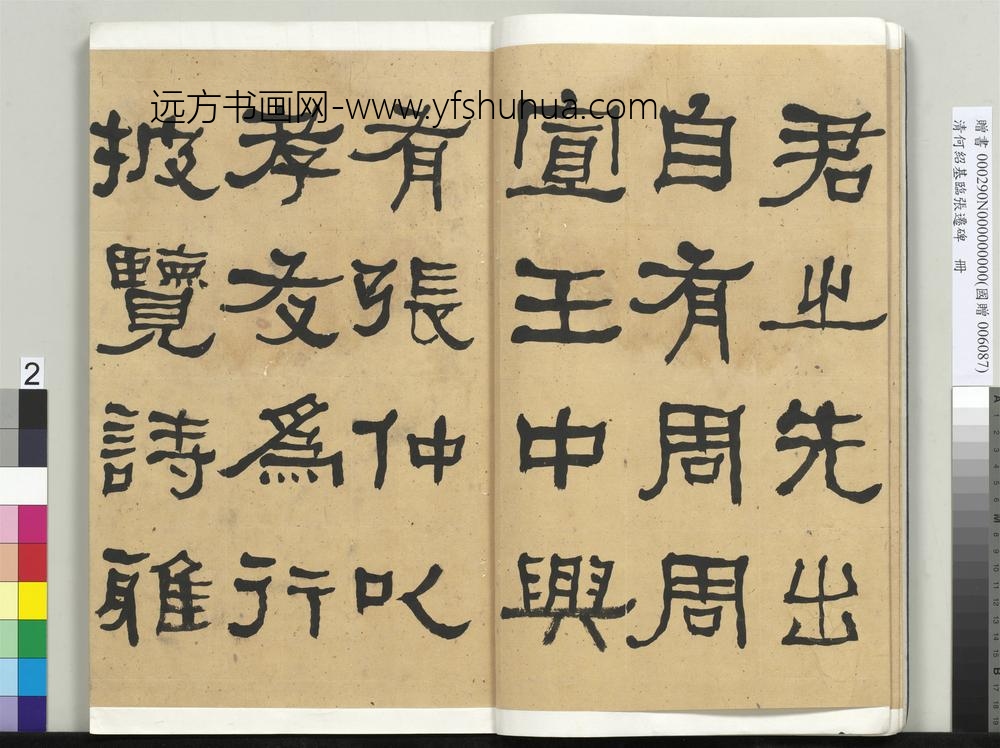 君之先出
自有周周
宣王中興
有張仲以
孝友為行
披覽詩雅
远方书画网-www.yfshuhua.com
贈書 000290N000000000(國贈 006087)
清何紹基臨張遷碑 冊
2